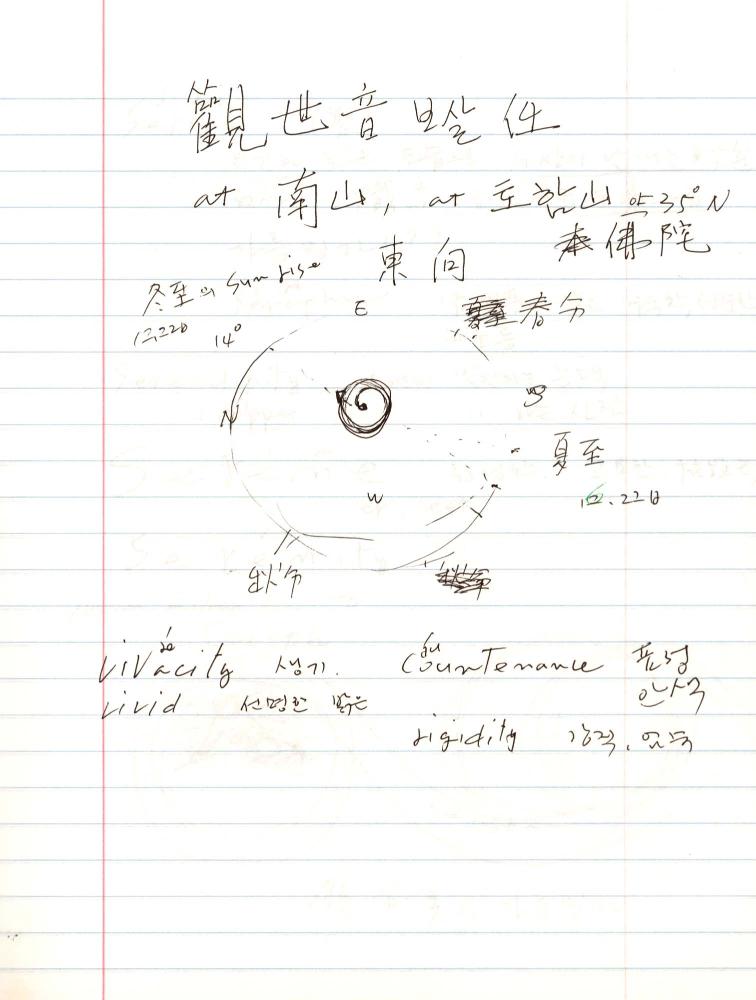 觀世音 보살 住
at 南山, at 토함山 약35°N
佛陀
東向
冬至의 sunrise
12.22日 14°
E
春分
N
S
夏至
.22日
W
秋分
vivacity 생기. countenance 표정
안색
vivid 선명한 밝은
rigidity 강직. 엄숙